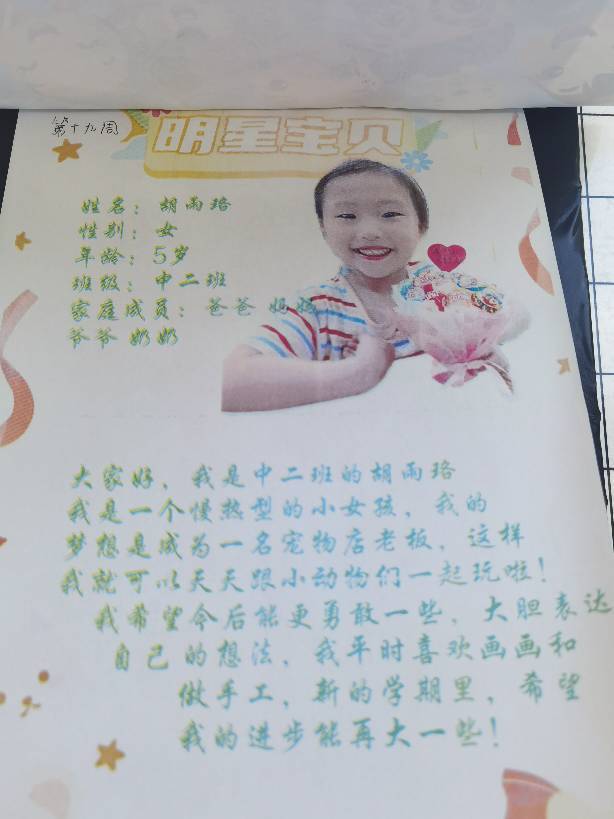 第十九周
明星宝贝
姓名：胡雨珞
性别：女
年龄：5岁
班级：中二班
家庭成员：爸爸 妈妈
爷爷 奶奶
大家好，我是中二班的胡雨珞
我是一个慢热型的小女孩，我的
梦想是成为一名宠物店老板，这样
我就可以天天跟小动物们一起玩啦！
我希望今后能更勇敢一些，大胆表达
自己的想法，我平时喜欢画画和
做手工，新的学期里，希望
我的进步能再大一些！